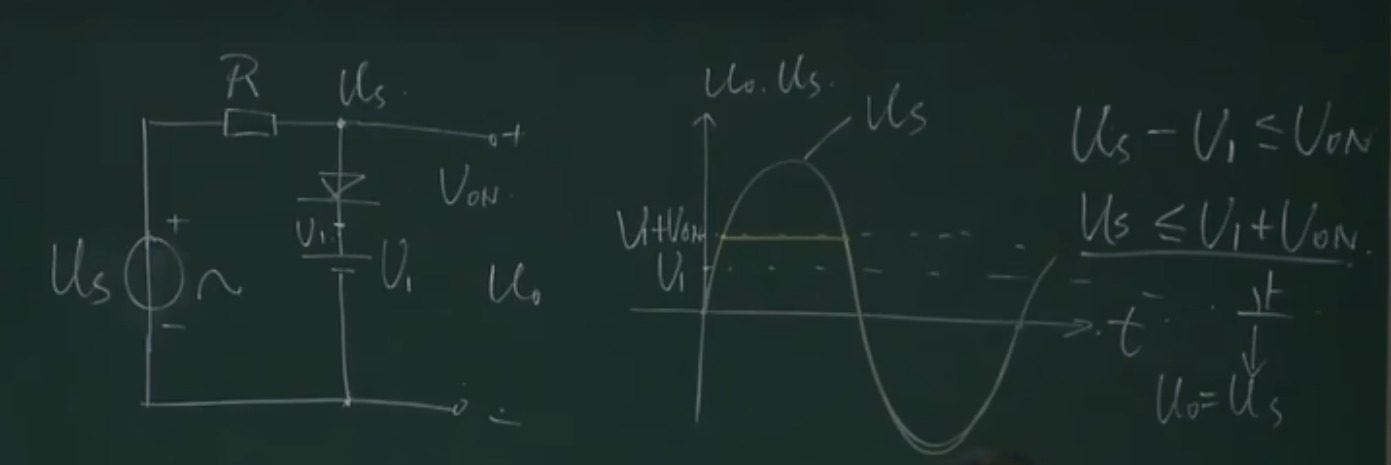 R
Us.
+
VON.
+
V1
Us
~
V1
Uo
-
-
Uo.Us.
Us
V1+VON
V1
t
Us - V1 ≤ VON
Us ≤ V1+VON.
Uo=Us